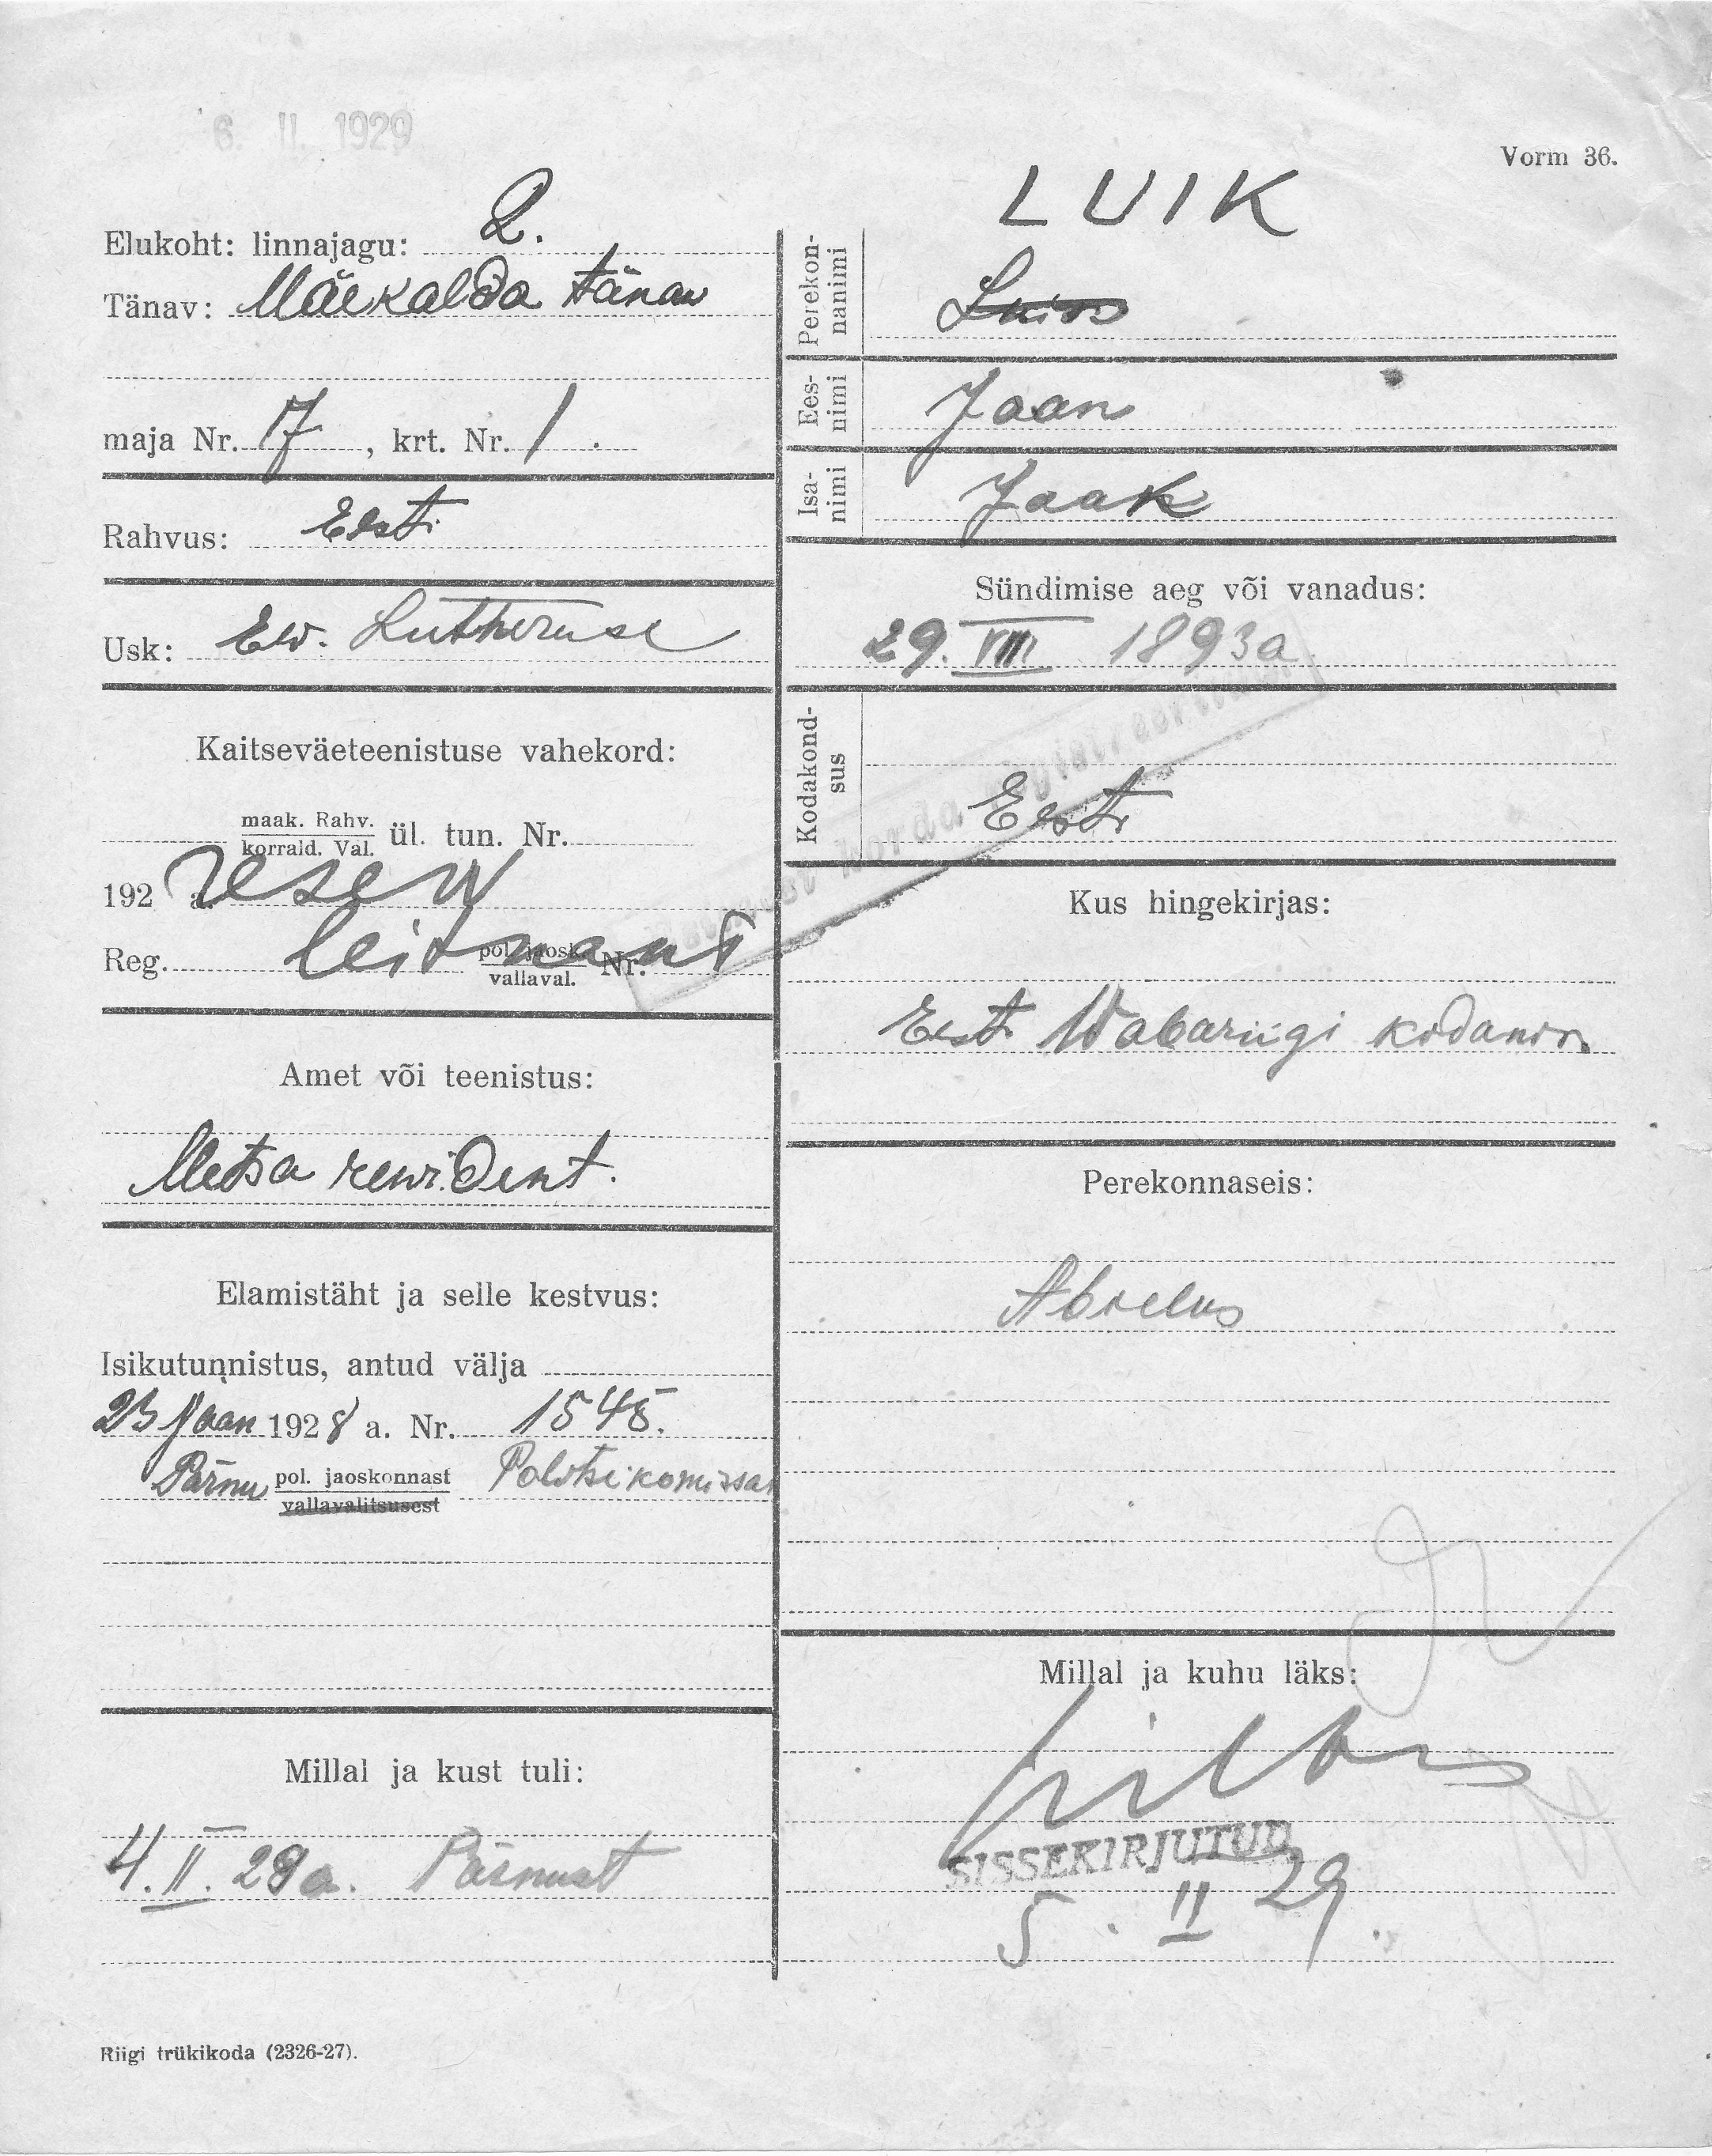 6. II. 1929
Vorm 36.
Elukoht: linnajagu: 2.
Tänav: Mäekalda tänaw
maja Nr. 17, krt. Nr. 1.
Rahvus: Eesti
Usk: Ew. Lutheruse
Kaitseväeteenistuse vahekord:
maak. Rahv.
korrald. Val. ül. tun. Nr.
192 a. reserv
Reg. leitnant pol. jaosk. Nr.
vallaval.
Amet või teenistus:
Metsa rewident.
Elamistäht ja selle kestvus:
Isikutunnistus, antud välja
23 Jaan 1928 a. Nr. 1545.
Pärnu pol. jaoskonnast Politseikomissar
vallavalitsusest
Millal ja kust tuli:
4. II. 29 a. Pärnust
Riigi trükikoda (2326-27).
LUIK
Perekon-
nanimi
Ees-
nimi Jaan
Isa-
nimi Jaak
Sündimise aeg või vanadus:
29. VIII 1893 a
Kodakond-
sus Eesti
Kus hingekirjas:
Eesti Wabariigi kodanik
Perekonnaseis:
Abielus
Millal ja kuhu läks:
SISSEKIRJUTUD
5. II 29.